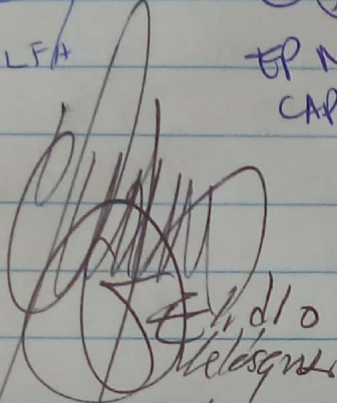 LFA
EP N
CAP
Elidio
Velásquez